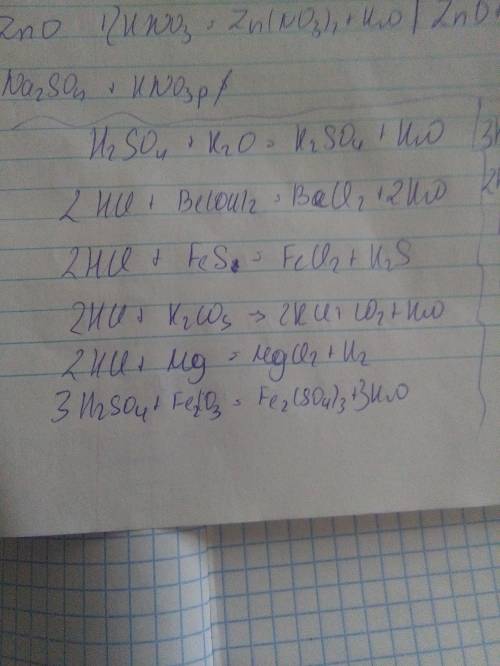 ZnO + 2HNO3 = Zn(NO3)2 + H2O | ZnO
Na2SO4 + HNO3 р/
H2SO4 + K2O = K2SO4 + H2O
2HCl + Ba(OH)2 = BaCl2 + 2H2O
2HCl + FeS = FeCl2 + H2S
2HCl + K2CO3 → 2KCl + CO2 + H2O
2HCl + Mg = MgCl2 + H2
3H2SO4 + Fe2O3 = Fe2(SO4)3 + 3H2O